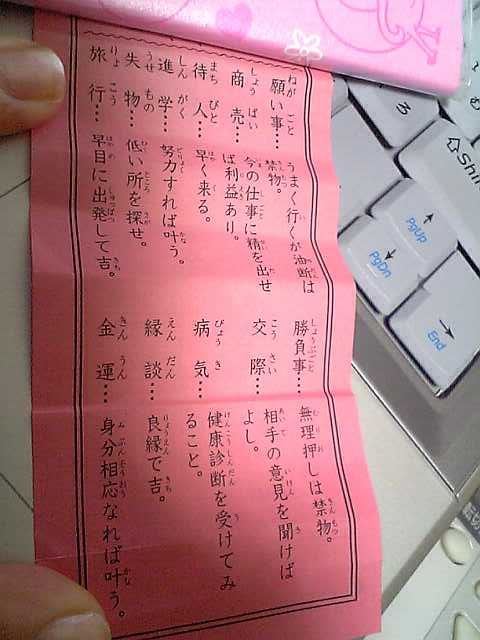 願い事…うまく行くが油断は
禁物。
商売…今の仕事に精を出せ
ば利益あり。
待人…早く来る。
進学…努力すれば叶う。
失物…低い所を探せ。
旅行…早目に出発して吉。
勝負事…無理押しは禁物。
交際…相手の意見を聞けば
よし。
病気…健康診断を受けてみ
ること。
縁談…良縁で吉。
金運…身分相応なれば叶う。
ろ
Shift
PgUp
PgDn
End